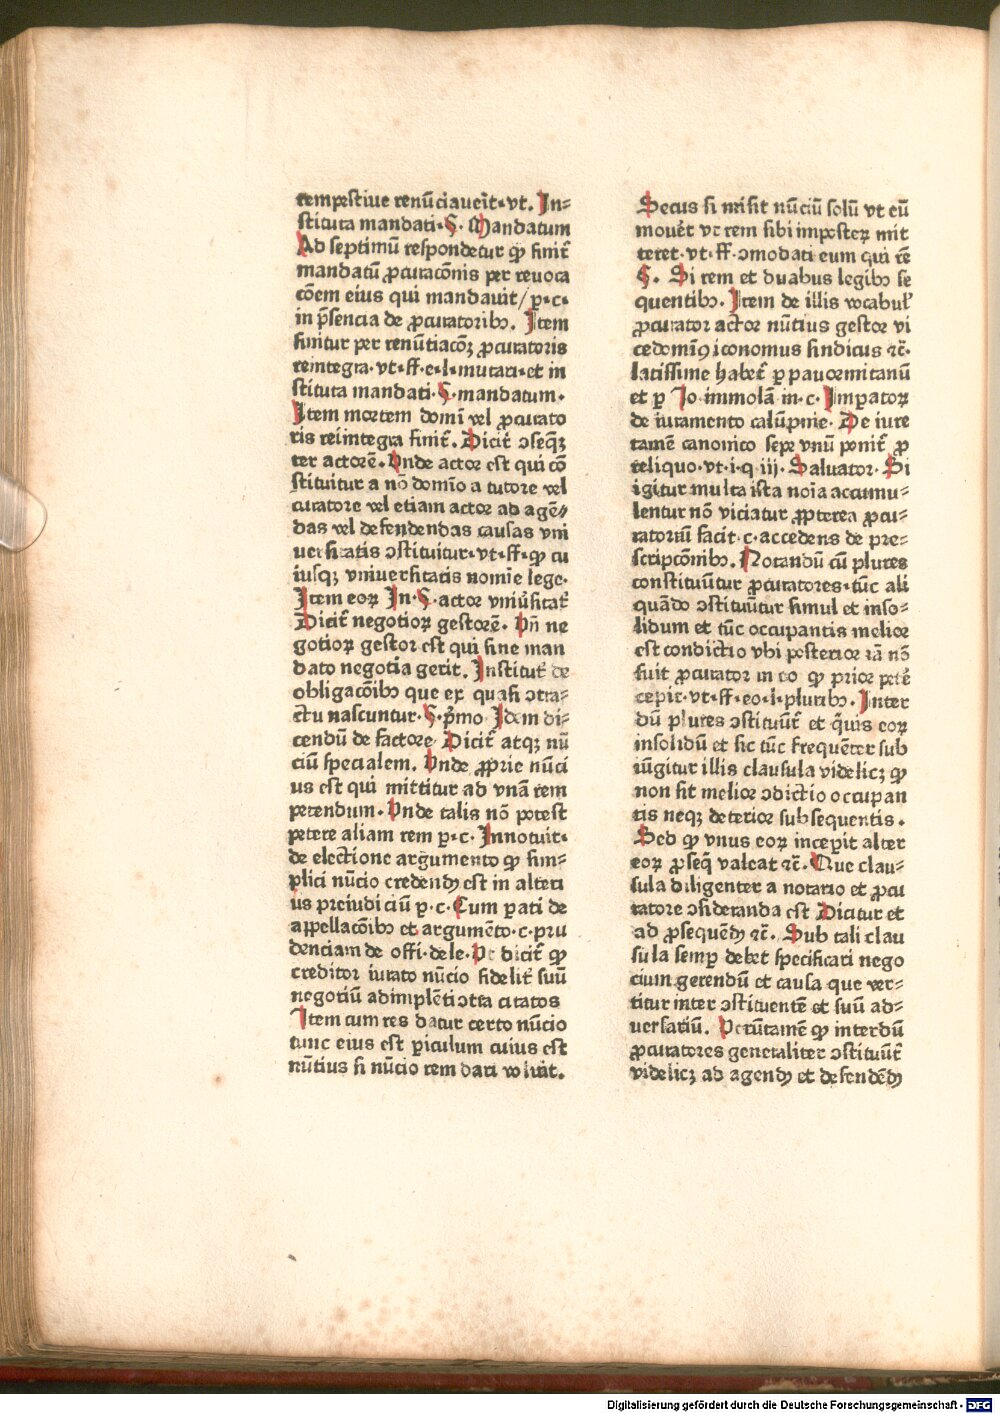 tempestiue renūciauerit·vt. In⸗
stituta mandati·§· Mandatum
Ad septimū respondetur ꝙ finit᷑
mandatū ꝓcuracōnis per reuoca
cōem eius qui mandauit/ ꝑ·c·
in p̄sencia de ꝓcuratoribꝫ. Item
finitur per renūtiacōꝫ ꝓcuratoris
reintegra·vt·ff·e·l·mutari·et in
stituta mandati·§·mandatum·
Item mortem domī vel ꝓcurato
ris reiintegra finit᷑. Dicit᷑ ↄseqn̄
ter actorē. Vnde actor est qui cō
stituitur a nō domīo a tutore vel
curatore vel etiam actor ad agē⸗
das vel defendendas causas vni
uersitatis ↄstituitur·vt·ff·ꝙ cu
iusqꝫ vniuersitatis nomīe lege·
Item eoꝝ In·§·actor vniūsitat᷑
Dicit᷑ negotioꝝ gestorē. Vn̄ ne
gotioꝝ gestor est qui sine man
dato negotia gerit. Institut᷑ de
obligacōibꝫ que ex quasi ↄtra⸗
ctu nascuntur·§·p̄mo Idem di⸗
cendū de factore Dicit᷑ atqꝫ nū
ciū specialem. Vnde ꝓprie nūci
us est qui mittitur ad vnā rem
petendum. Vnde talis nō potest
petere aliam rem ꝑ·c· Innotuit·
de electione argumento ꝙ sim⸗
plici nūcio credendꝫ est in alteri
us preiudiciū ꝑ·c·Cum ꝑati de
appellacōibꝫ et argumēto·c·pru
denciam de offi·dele· Et dicit᷑ ꝙ
creditor iurato nūcio fidelit᷑ suū
negotiū adimplēti ↄtta citatos
Item cum res datur certo nūcio
tunc eius est ꝑiculum cuius est
nūtius si nūcio rem dari voluit.
Secus si misit nūciū solū vt eū
mouēt vt rem sibi imposteꝝ mit
teret·vt·ff·ↄmodati eum qui rē
§. Si rem et duabus legibꝫ se
quentibꝫ. Item de illis vocabul᷑
ꝓcurator actor nūtius gestor vi
cedomīꝯ iconomus sindicus ꝛc̄·
latissime habet᷑ ꝑ panormitanū
et ꝑ Jo·immolā in·c·Imꝑatoꝝ
de iuramento calūpnie· De iure
tamē canonico sepe vnū ponit᷑ ꝓ
reliquo·vt·i·q iii·Saluator· Si
igitur multa ista noīa accumu⸗
lentur nō viciatur ꝓpterea ꝓcu⸗
ratorium facit·c·accedens de pre⸗
scripcōnibꝫ. Notandū cū plures
constituūtur ꝓcuratores·tūc ali
quādo ↄstituūtur simul et inso⸗
lidum et tūc occupantis melior
est condictio vbi posterior iā nō
fuit ꝓcurator in eo ꝙ prior petē
cepit·vt·ff·eo·l·pluribꝫ. Inter
dū plures ↄstituūt᷑ et q̄uis eoꝝ
insolidū et sic tūc frequēter sub
iūgitur illis clausula videlicꝫ ꝙ
non sit melior ↄdictio occupan
tis neqꝫ deterior subsequentis.
Sed ꝙ vnus eoꝝ inceperit alter
eoꝝ ꝓseq̄ valeat ꝛc̄. Que clau⸗
sula diligenter a notario et ꝓcu
ratore ↄsideranda est Dicitur et
ad ꝓsequēdꝫ ꝛc̄. Sub tali clau
sula semꝑ debet specificari nego
cium gerendū et causa que ver⸗
titur inter ↄstituentē et suū ad⸗
uersariū. Verūtamē ꝙ interdū
ꝓcuratores generaliter ↄstituūt᷑
videlicꝫ ad agendꝫ et defendēdꝫ
Digitalisierung gefördert durch die Deutsche Forschungsgemeinschaft · DFG